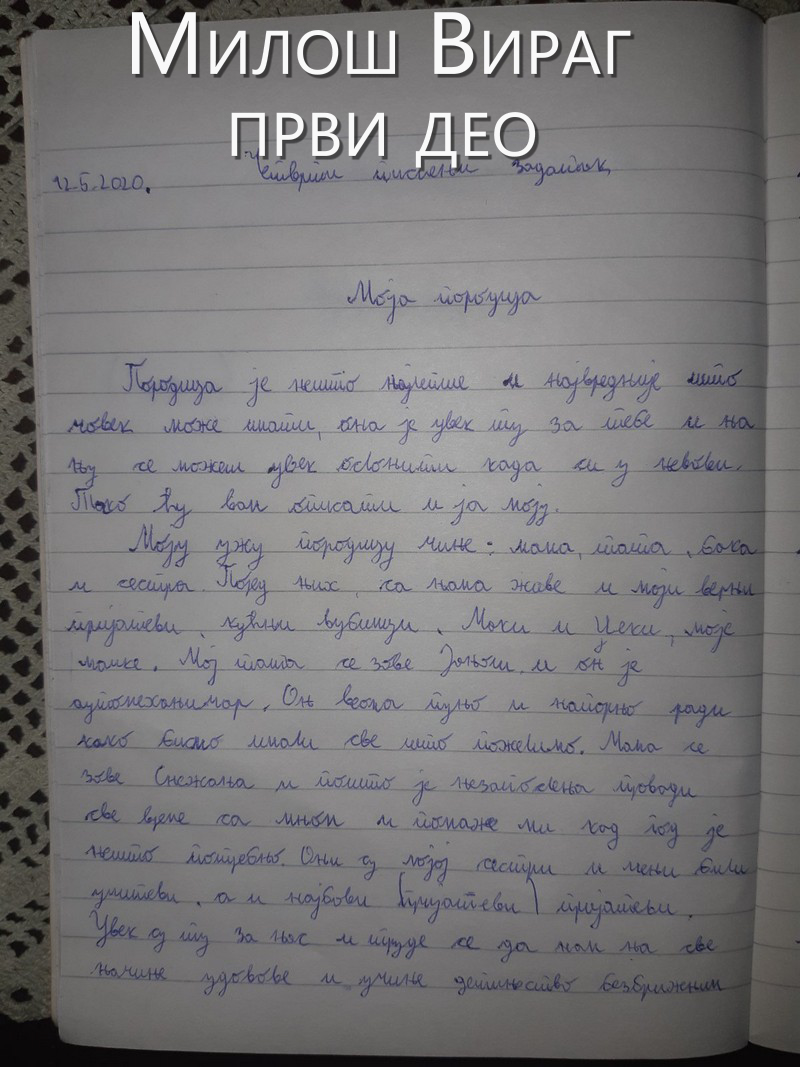 Милош Вираг
први део
12.5.2020. Четврти писмени задатак
Моја породица
Породица је нешто најлепше и највредније што
човек може имати, она је увек ту за тебе и на
њу се можеш увек ослонити када си у невољи.
Тако ћу вам описати и ја моју.
Моју ужу породицу чине: мама, тата, бака
и сестра. Поред њих, са нама живе и моји верни
пријатељи, кућни љубимци, Моки и Цеки, моје
мачке. Мој тата се зове Јањош и он је
аутомеханичар. Он веома пуно и напорно ради
како бисмо имали све што пожелимо. Мама се
зове Снежана и пошто је незапослена проводи
све време са мном и помаже ми кад год је
нешто потребно. Они су мојој сестри и мени били
учитељи, а и најбољи (пријатељи) пријатељи.
Увек су ту за нас и труде се да нам на све
начине удовоље и учине детињство безбрижним